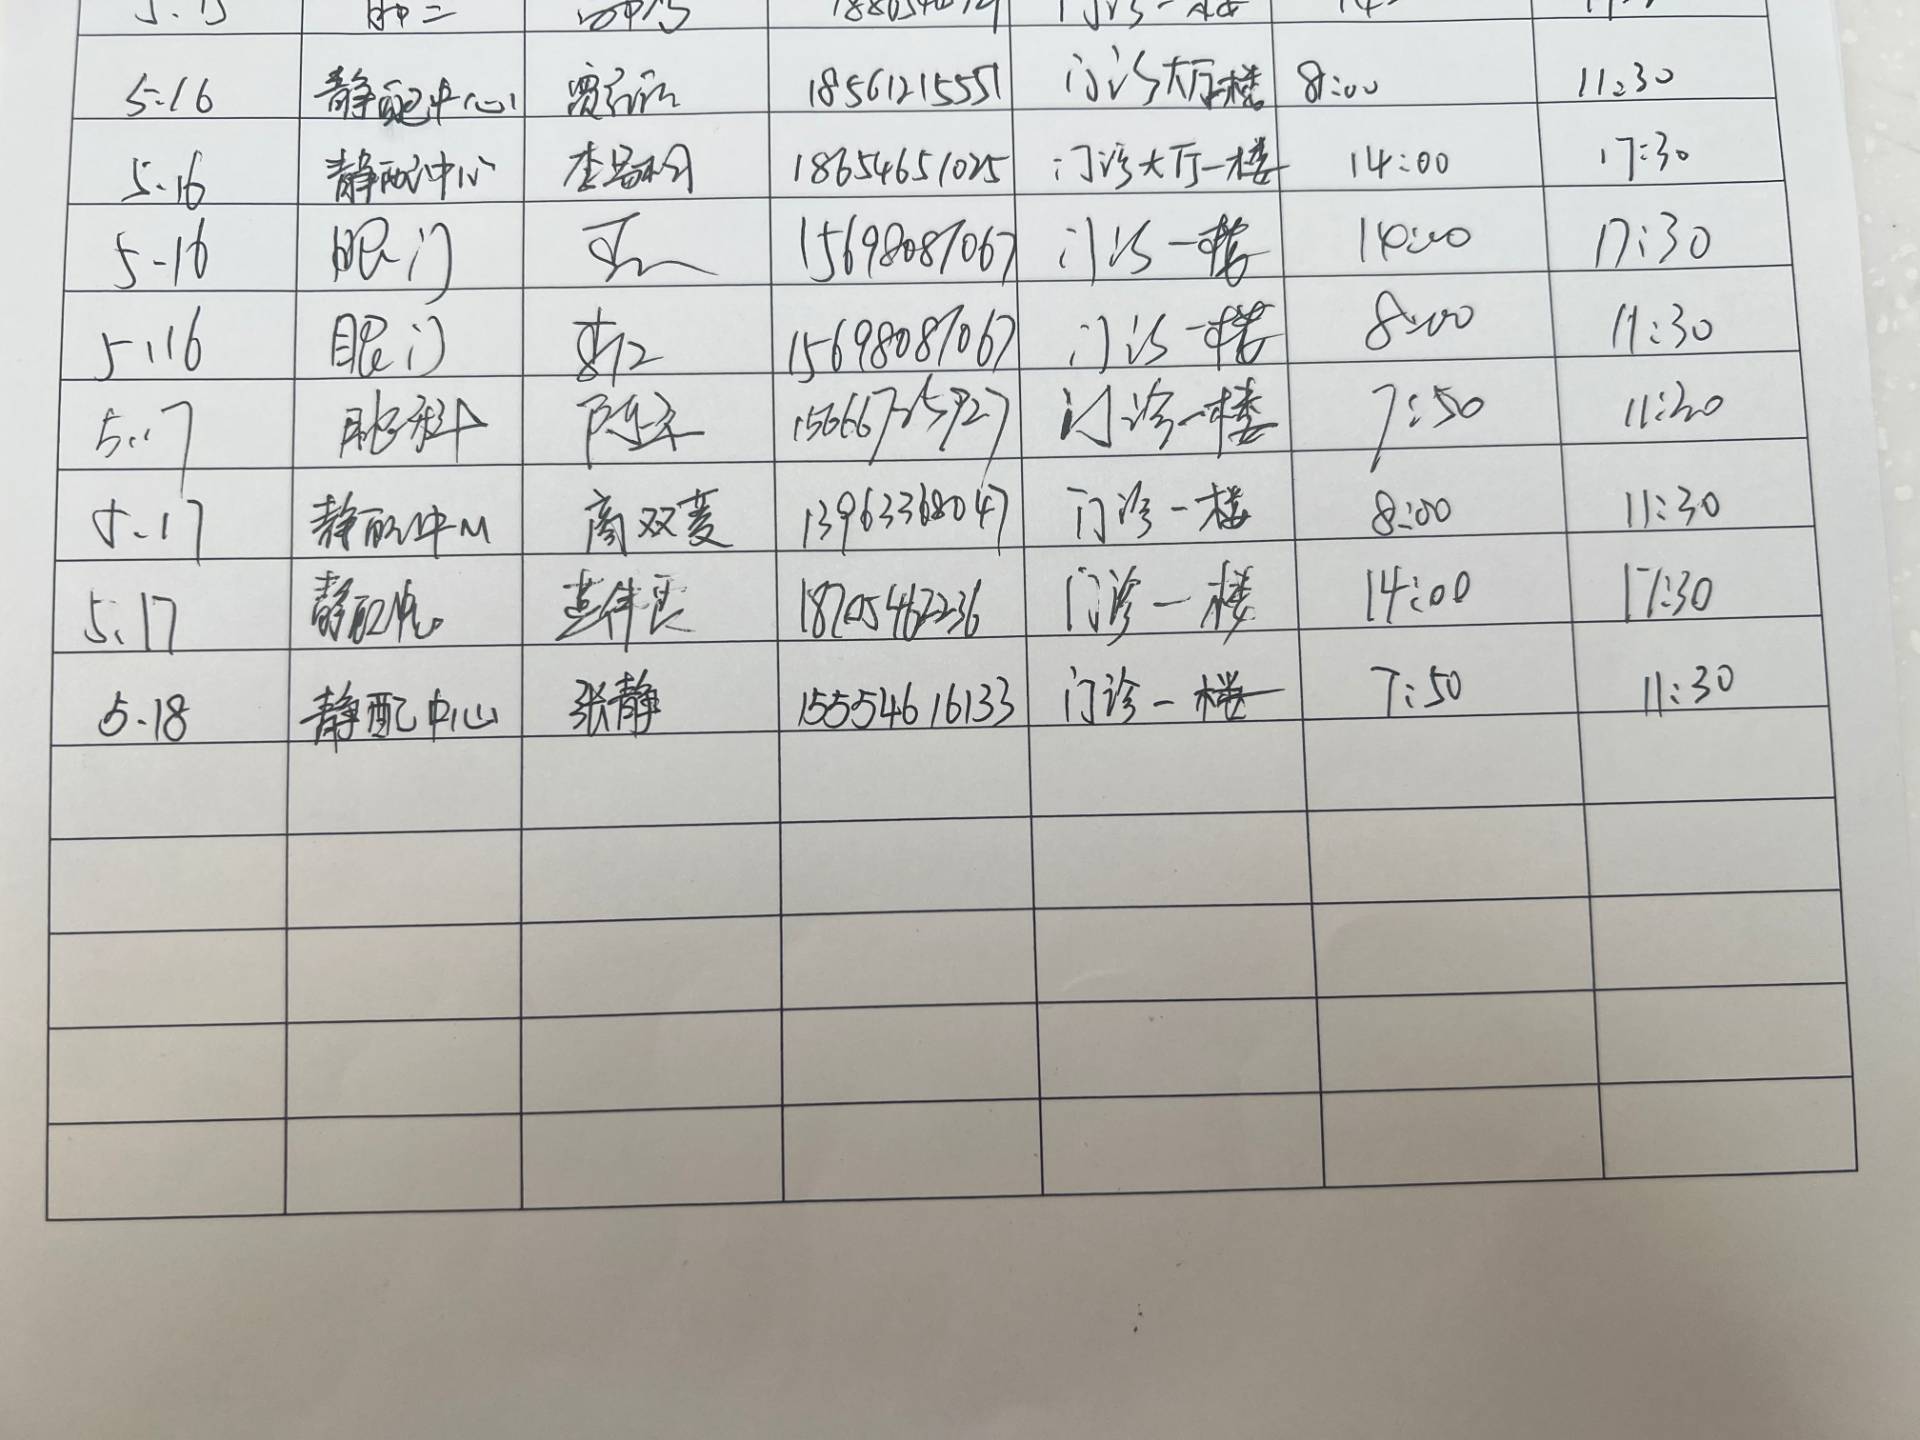 5.16 静配中心 贾 18561215551 门诊大厅一楼 8:00 11:30
5.16 静配中心 李 18654651025 门诊大厅一楼 14:00 17:30
5.16 眼门 15698087067 门诊一楼 14:00 17:30
5.16 眼门 15698087067 门诊一楼 8:00 11:30
5.17 眼科 陈 门诊一楼 7:50 11:30
5.17 静配中心 商双菱 13963368047 门诊一楼 8:00 11:30
5.17 静配中心 18705462236 门诊一楼 14:00 17:30
5.18 静配中心 张静 15554616133 门诊一楼 7:50 11:30